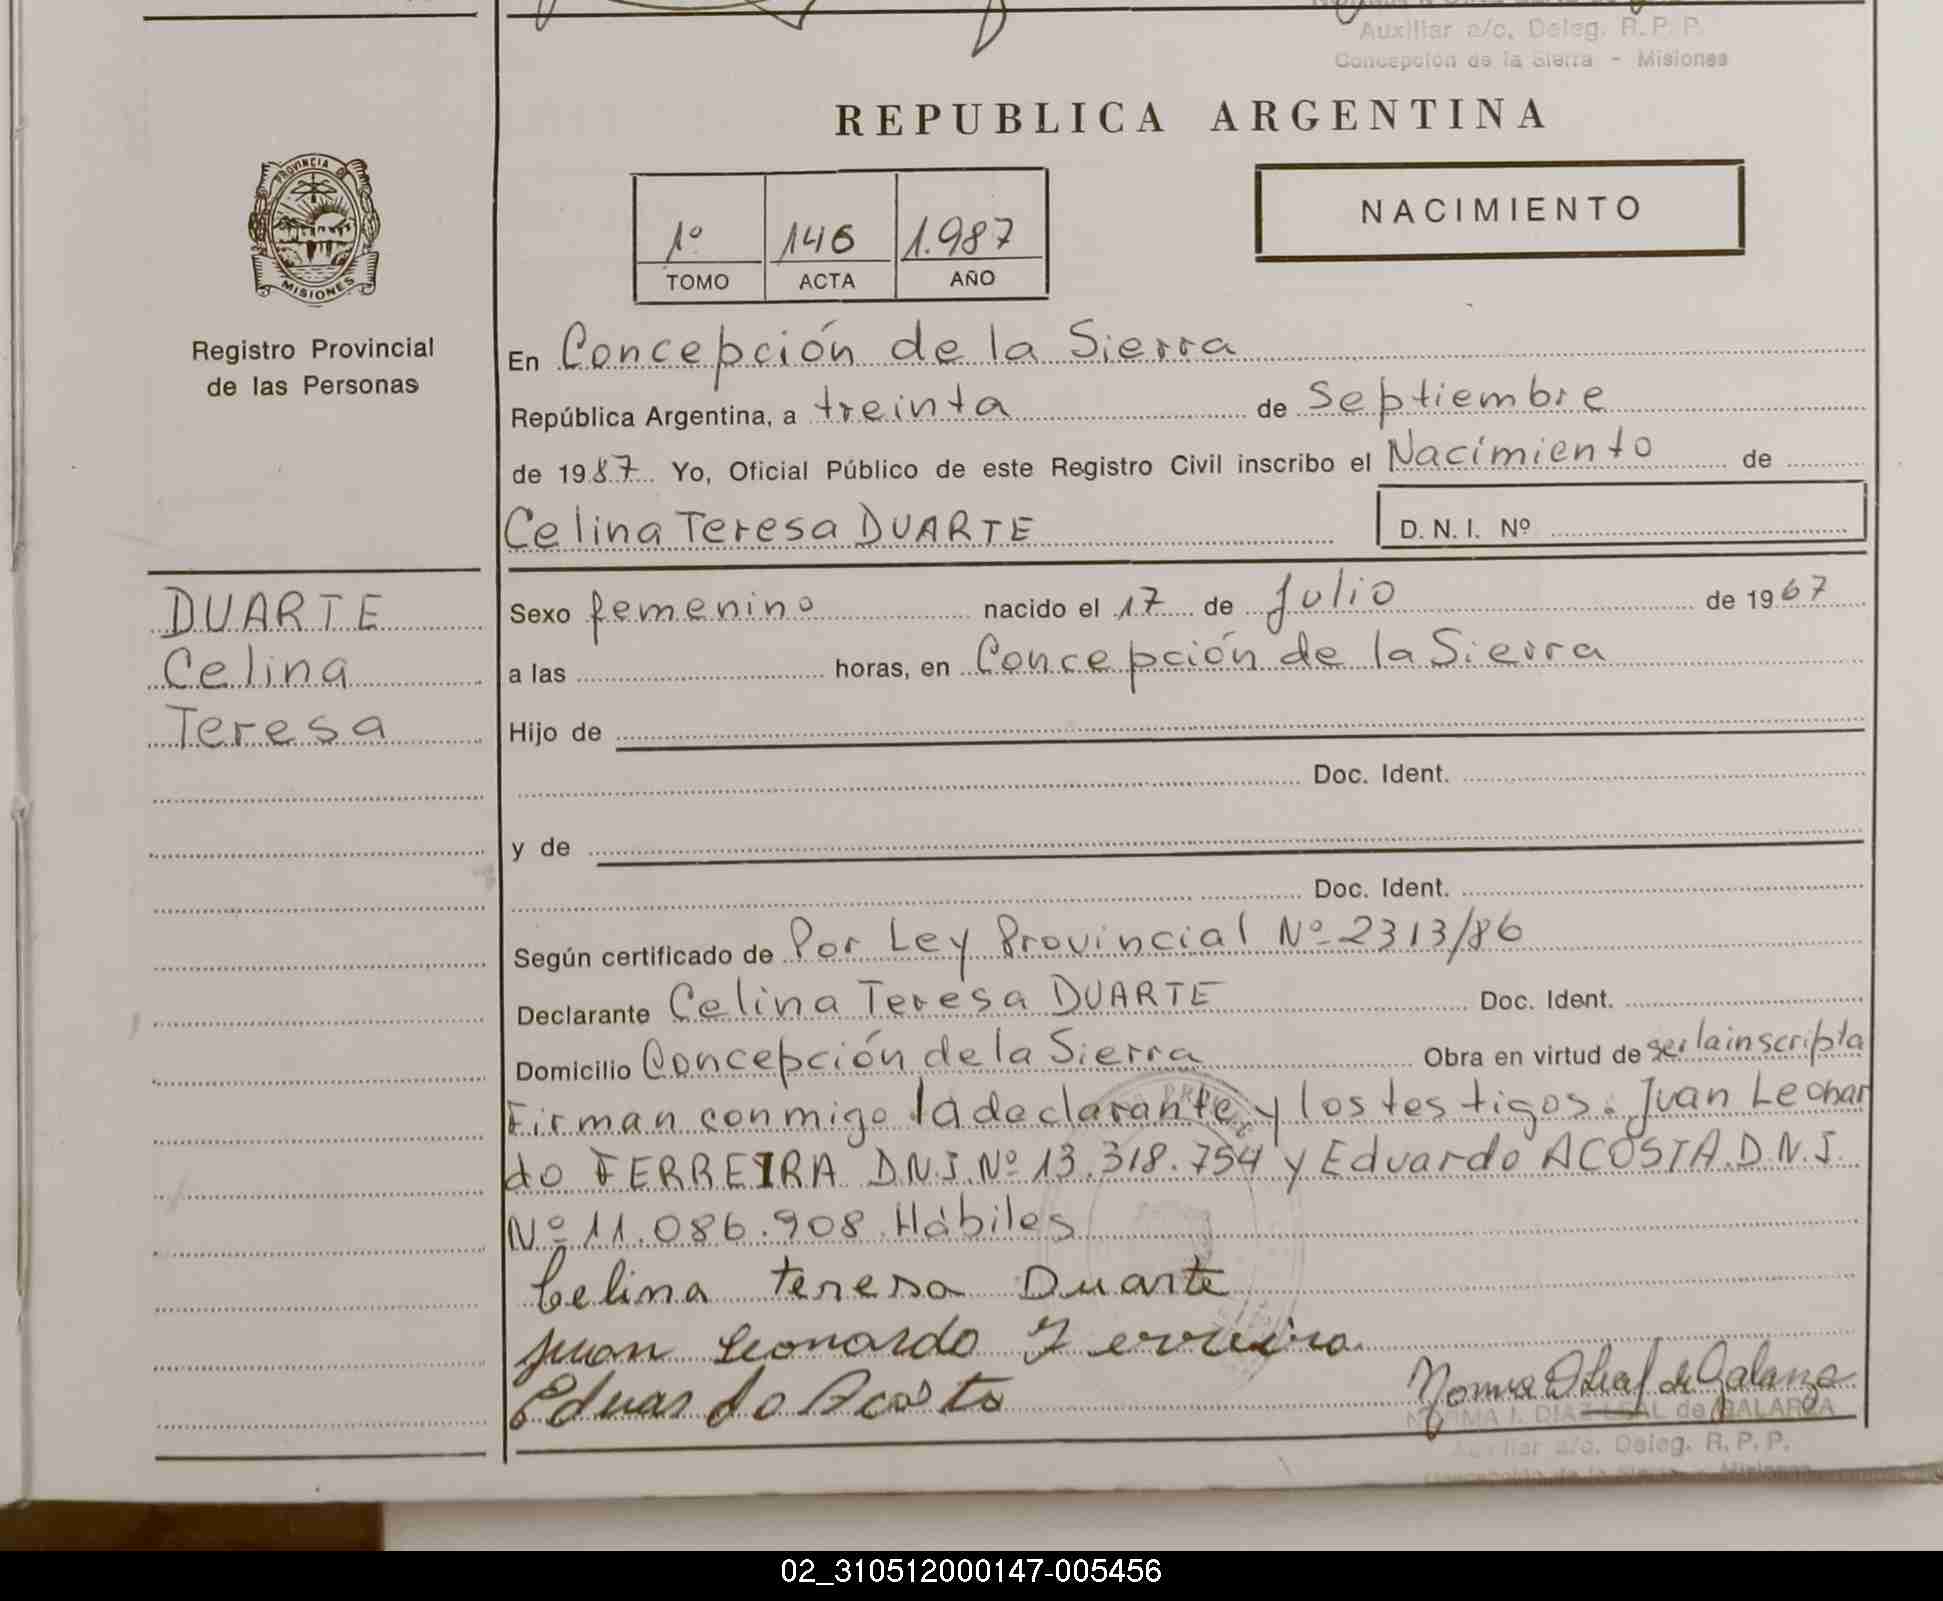 Auxiliar a/c. Deleg. R. P. P.
Concepción de la Sierra - Misiones
REPUBLICA ARGENTINA
PROVINCIA DE
MISIONES
Registro Provincial
de las Personas
1º 146 1.987
TOMO ACTA AÑO
NACIMIENTO
En Concepción de la Sierra
República Argentina, a treinta de Septiembre
de 1987 Yo, Oficial Público de este Registro Civil inscribo el Nacimiento de
Celina Teresa DUARTE D. N. I. Nº
DUARTE
Celina
Teresa
Sexo femenino nacido el 17 de Julio de 1967
a las horas, en Concepción de la Sierra
Hijo de
Doc. Ident.
y de
Doc. Ident.
Según certificado de Por Ley Provincial Nº 2313/86
Declarante Celina Teresa DUARTE Doc. Ident.
Domicilio Concepción de la Sierra Obra en virtud de ser la inscripta
Firman conmigo la declarante y los testigos. Juan Leonar
do FERREIRA D.N.I. Nº 13.318.754 y Eduardo ACOSTA D.N.I.
Nº 11.086.908 Hábiles
Celina Teresa Duarte
Juan Leonardo Ferreira
Eduardo Acosta
NORMA I. DIAZ LEAL de GALARZA
Auxiliar a/c. Deleg. R. P. P.
Concepción de la Sierra - Misiones
02_310512000147-005456